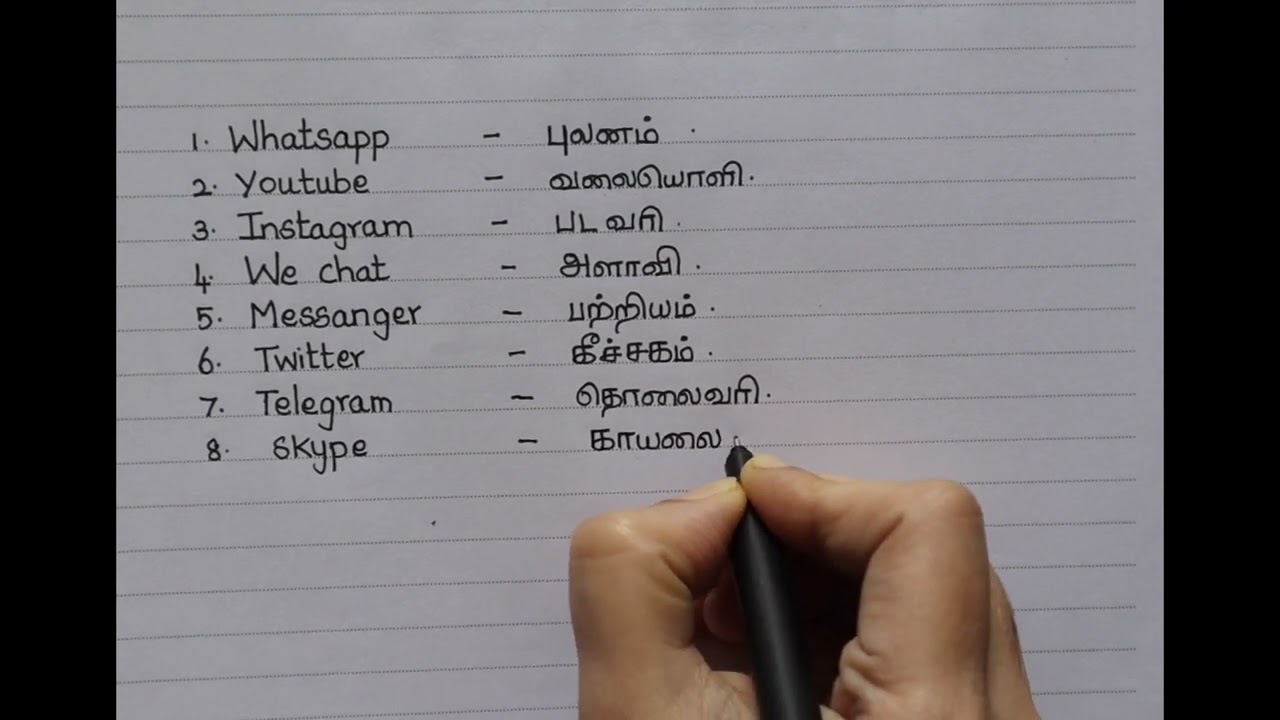 1. Whatsapp - புலனம் .
2. Youtube - வலையொளி.
3. Instagram - படவரி .
4. We chat - அளாவி .
5. Messanger - பற்றியம் .
6. Twitter - கீச்சகம் .
7. Telegram - தொலைவரி.
8. Skype - காயலை